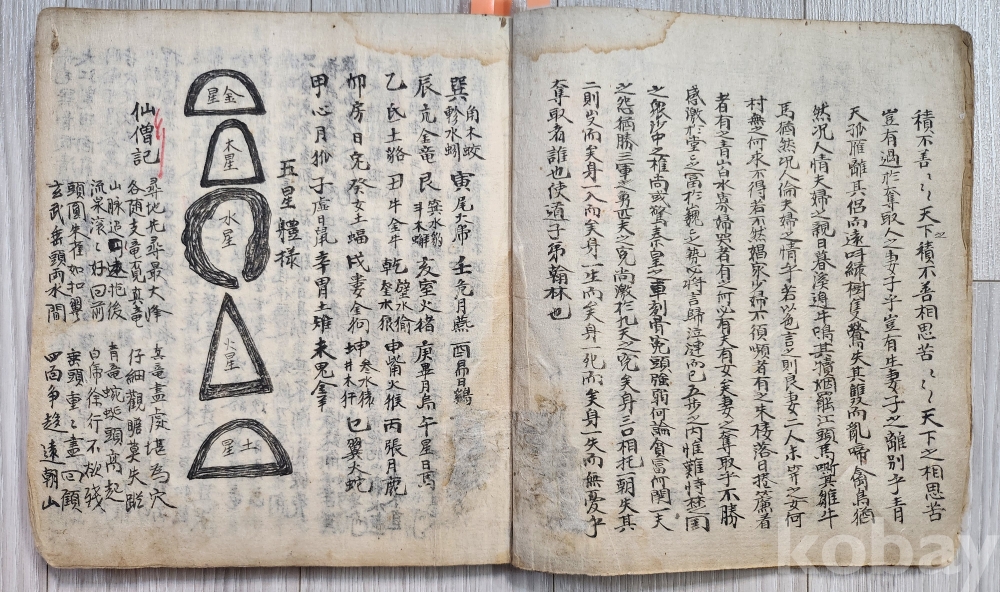 積不善〻〻天下之積不善相思苦〻〻天下之相思苦
豈有過於奪取人之妻子乎豈有生妻子之離別乎青
天孤雁離其侶而遠呼綠樹隻鶯失其雛而亂啼禽鳥猶
然況人情夫婦之親日暮溪邊牛鳴其犢烟羅江頭馬嘶其雛牛
馬猶然况人倫夫婦之情乎若以色言之則良妻二人未笄之女何
村無之何求不得若不然娼家少婦不須嚬者有之朱樓落日捲簾看
者有之青山白水寡婦哭者有之何必有夫有女矣妻之奪取乎不勝
感激於堂之富於親之勢必將言歸泣漣而已五步之內惟難恃楚國
之衆沙中之椎尚或驚秦皇之車刻骨寃頭強弱何論貧富何関一夫
之怨猶勝三軍之勇匹夫之寃尚激於九天之寃矣身三口相托朝失其
二則而矣身一入而矣身一生而矣身一死而矣身一失而無憂乎
奪取者誰也使道子弟翰林也
巽 角木蛟 軫水蚓 寅尾火虎 壬危月燕 酉昴日鷄
辰亢金竜 艮 箕水豹 斗木獬 亥室火猪 庚畢月烏 午星日馬
乙氐土貉 丑牛金牛 乾 壁水貐 奎木狼 申觜火猴 丙張月鹿
卯房日兎 癸女土蝠 戌婁金狗 坤 參水猿 井木犴 巳翼火蛇
甲心月狐 子虛日鼠 辛胃土雉 未鬼金羊
五星體様
金星
木星
水星
火星
土星
仙僧記
尋地先尋最大峰 真竜盡處堪為穴
各随支竜覓真竜 仔細觀瞻莫失蹤
山脉逶迤抱後 青竜蜿蜒頭高起
流泉滾〻好回前 白虎徐行不欲残
頭圓失種如扣轝 巒頭重〻盡回顧
玄武垂頭兩水間 四面爭趍遠朝山